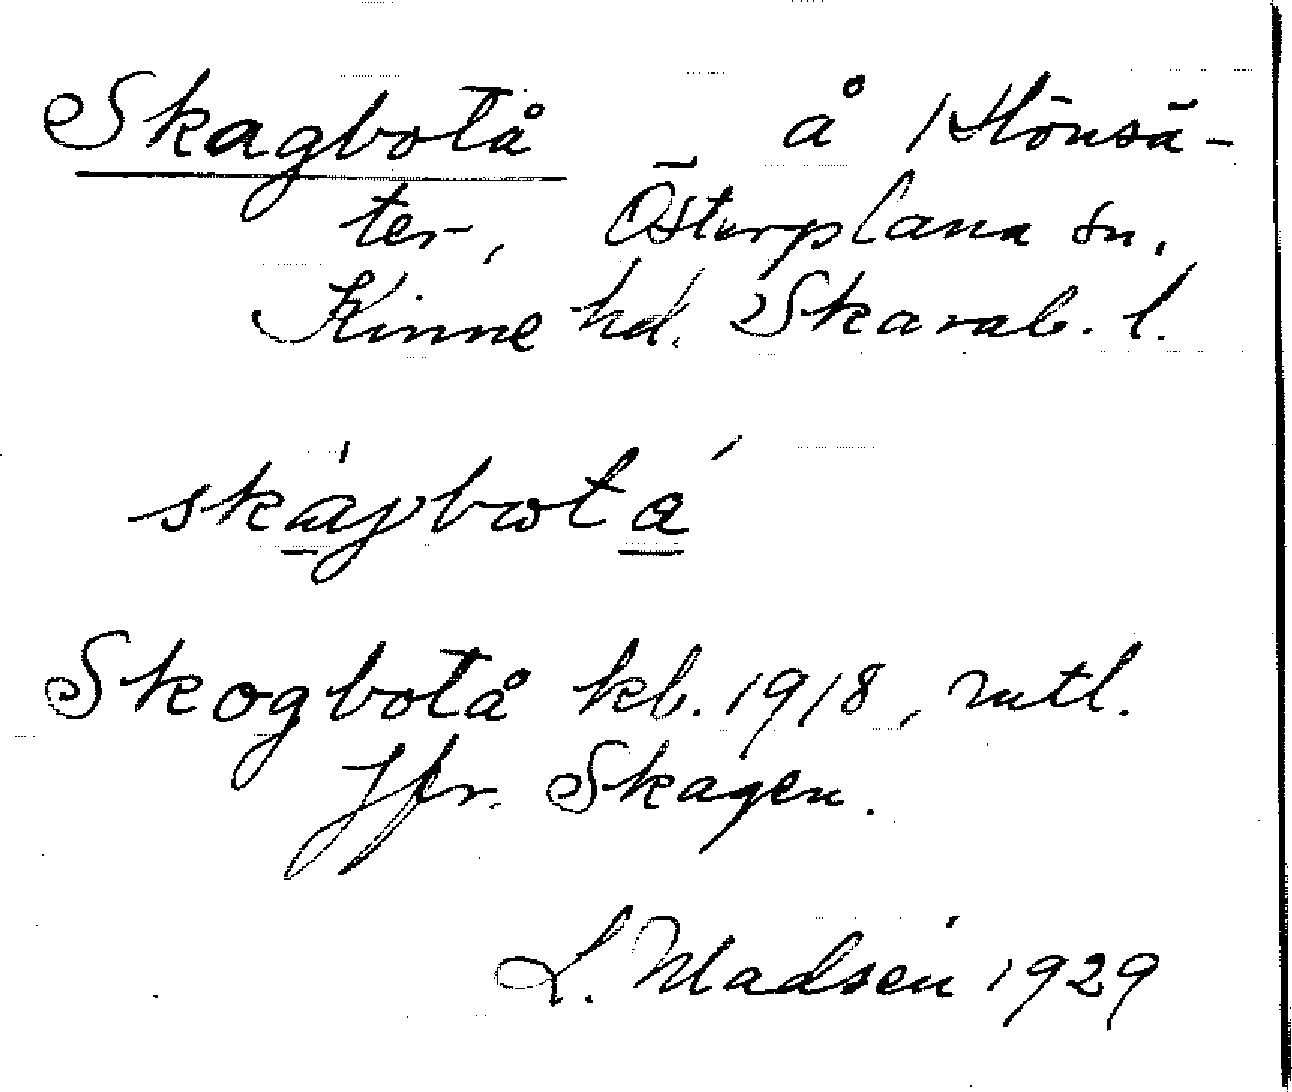 Skagbotå å Hönsä-
ter, Österplana sn.
Kinne hd. Skarab. l.
Skogbotå kb. 1918, mtl.
Jfr. Skagen.
L. Madsén 1929